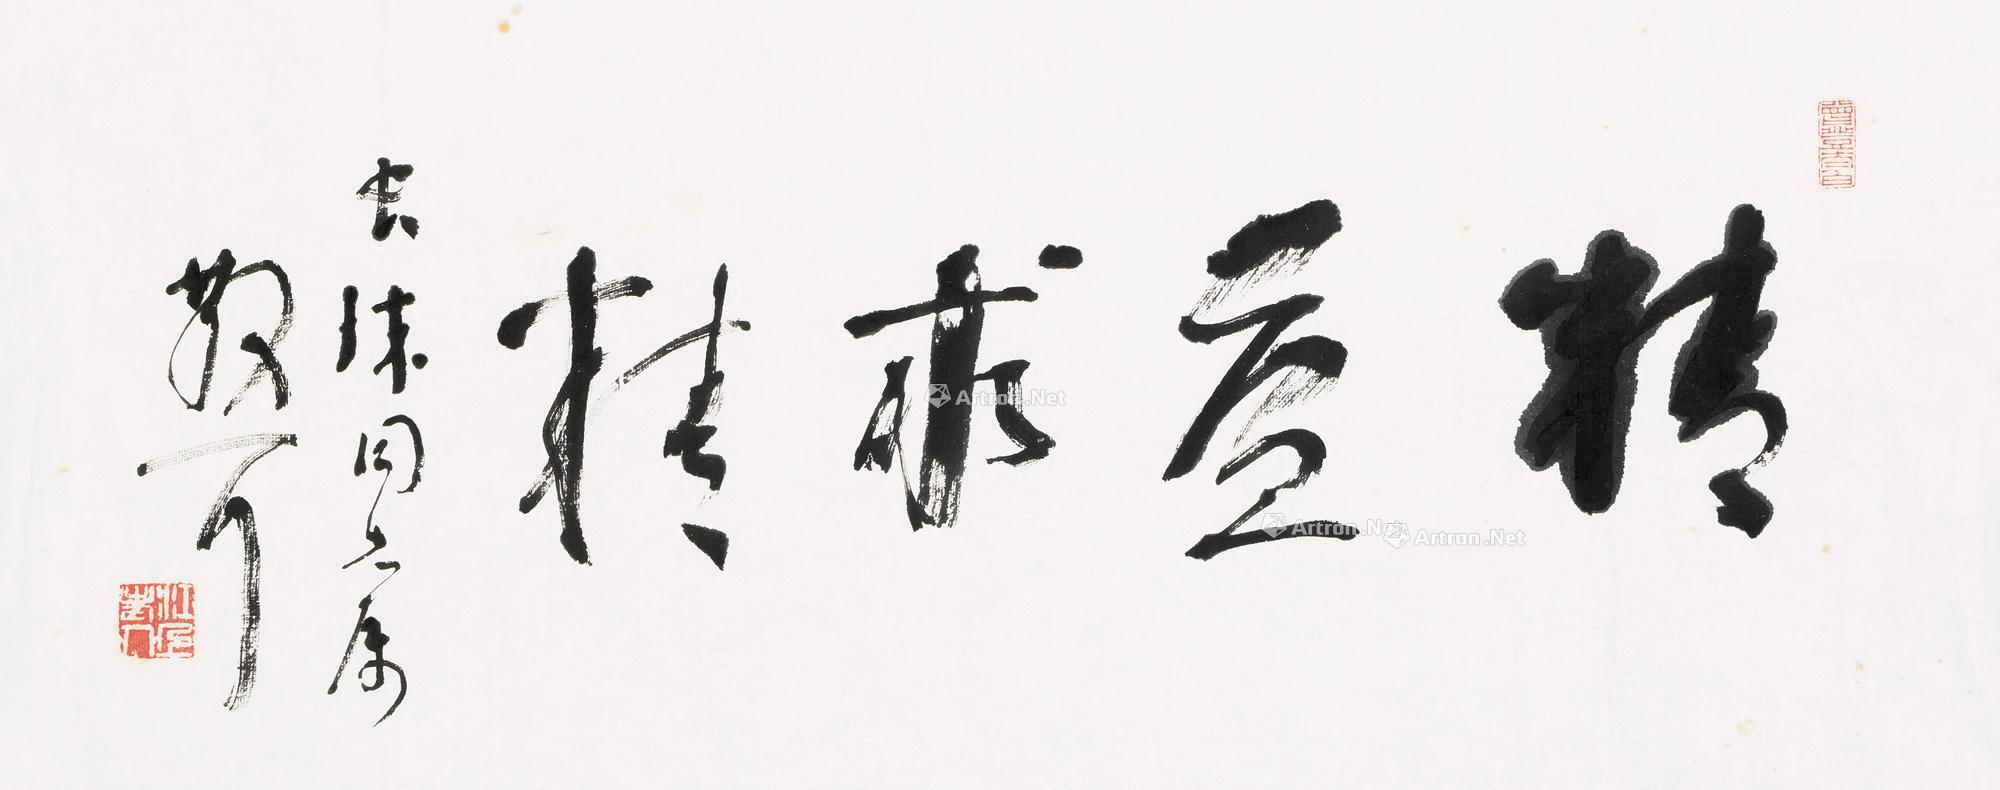 精益求精
长珠同志属
散耳
Artron.Net
Artron.Net
Artron.Net